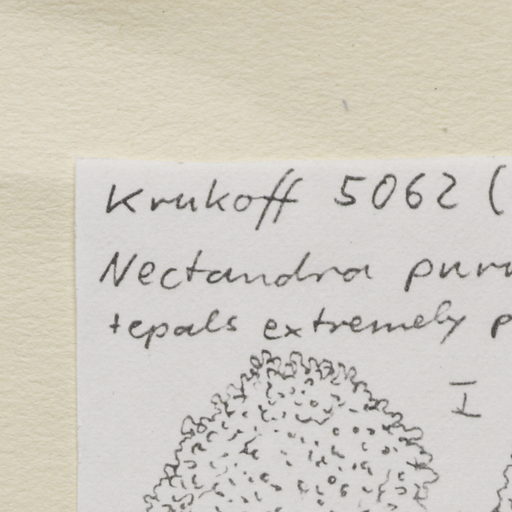 Krukoff 5062 (
Nectandra puru
tepals extremely p
I